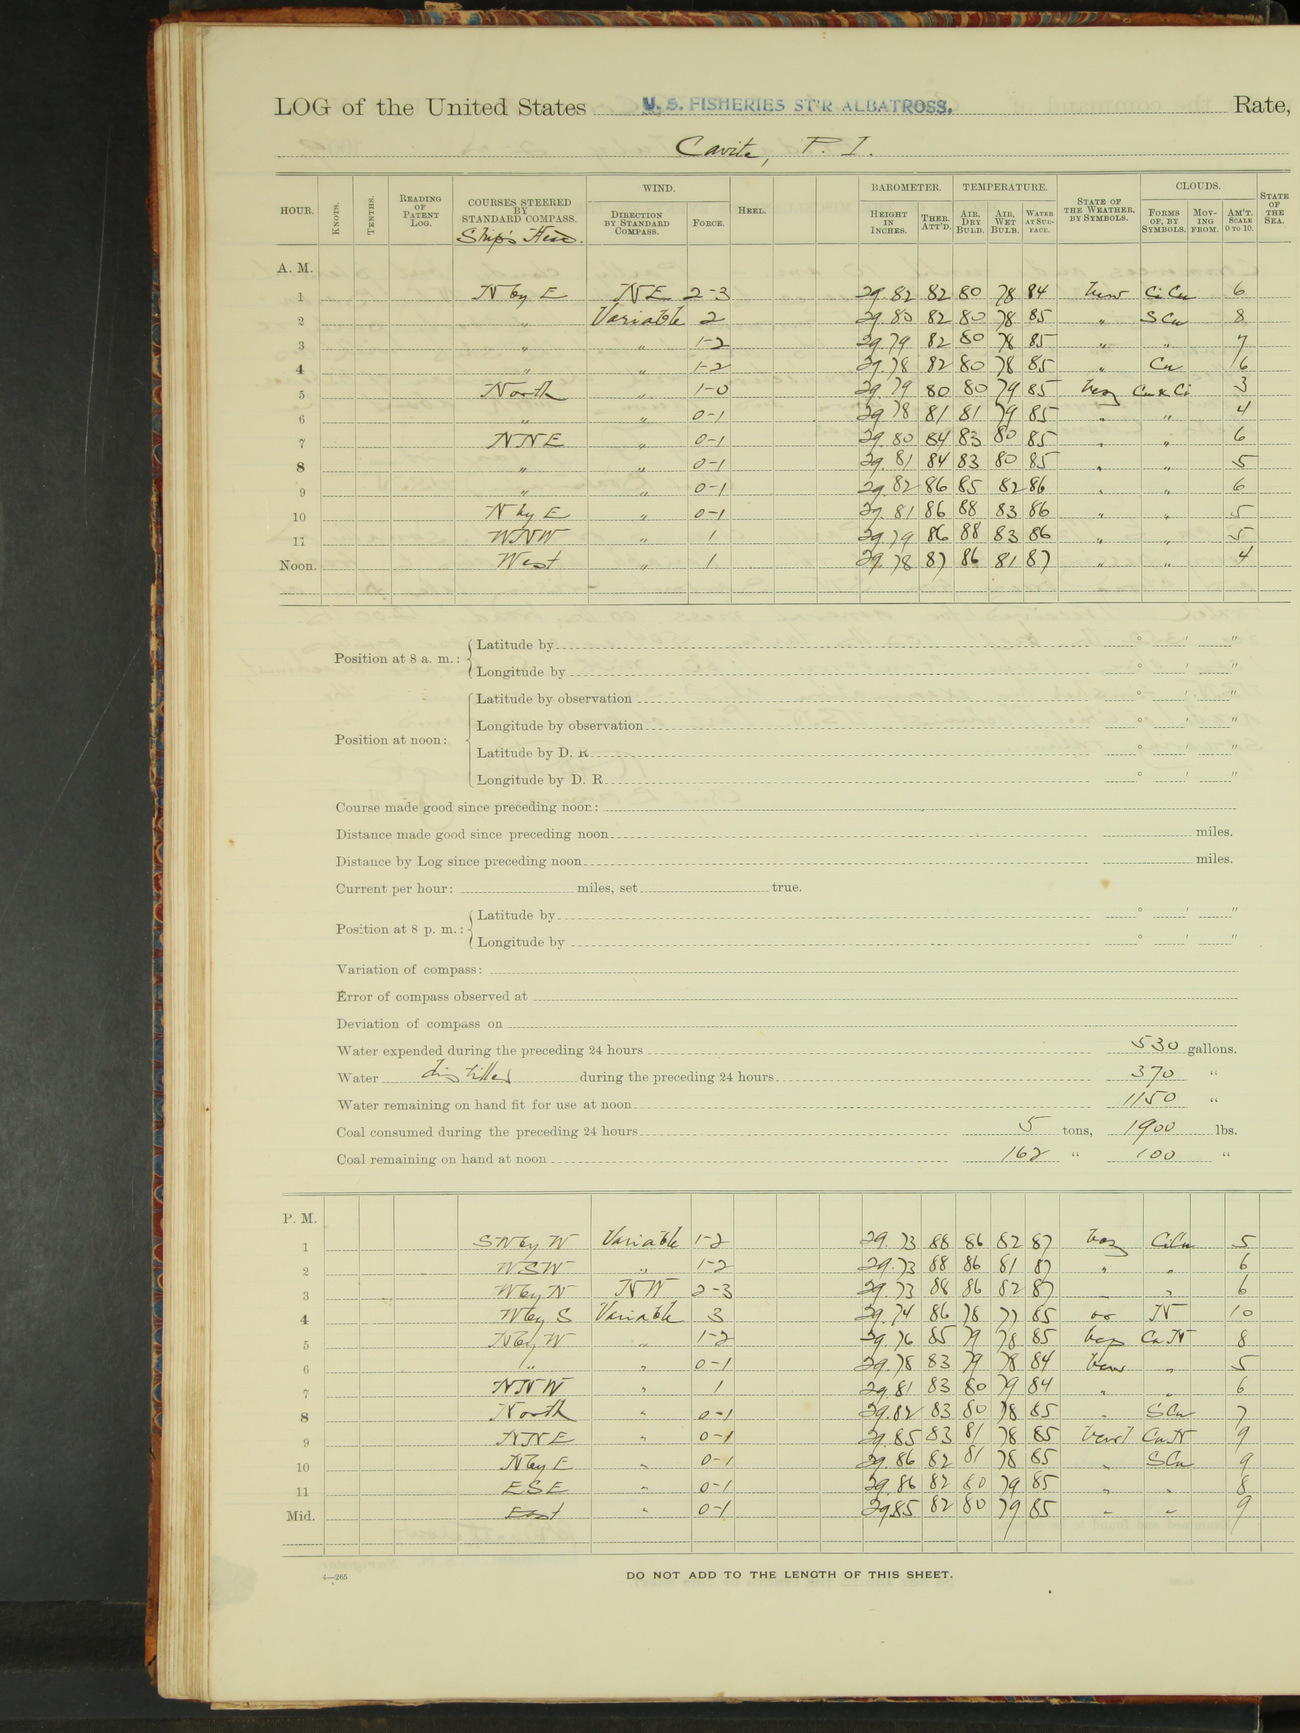 LOG of the United States U. S. FISHERIES ST'R ALBATROSS. Rate,
Cavite, P. I.
HOUR. KNOTS. TENTHS. READING OF PATENT LOG. COURSES STEERED BY STANDARD COMPASS. Ship's Head. WIND. DIRECTION BY STANDARD COMPASS. FORCE. HEEL. BAROMETER. HEIGHT IN INCHES. THER. ATT'D. TEMPERATURE. AIR, DRY BULB. AIR, WET BULB. WATER AT SURFACE. STATE OF THE WEATHER, BY SYMBOLS. CLOUDS. FORMS OF, BY SYMBOLS. MOVING FROM. AM'T. SCALE 0 TO 10. STATE OF THE SEA.
A. M.
1 N by E NE 2-3 29.82 82 80 78 84 Ci Cu 6
2 " Variable 2 29.80 82 80 78 85 " S Cu 8
3 " " 1-2 29.79 82 80 78 85 " " 7
4 " " 1-2 29.78 82 80 78 85 " Cu 6
5 North " 1-0 29.79 80 80 79 85 Cu & Ci 3
6 " " 0-1 29.78 81 81 79 85 " " 4
7 NNE " 0-1 29.80 84 83 80 85 " " 6
8 " " 0-1 29.81 84 83 80 85 " " 5
9 " " 0-1 29.82 86 85 82 86 " " 6
10 N by E " 0-1 29.81 86 88 83 86 " " 5
11 WNW " 1 29.79 86 88 83 86 " " 5
Noon. West " 1 29.78 87 86 81 87 " " 4
Position at 8 a. m.: Latitude by ° ' "
Longitude by ° ' "
Position at noon: Latitude by observation ° ' "
Longitude by observation ° ' "
Latitude by D. R. ° ' "
Longitude by D. R. ° ' "
Course made good since preceding noon:
Distance made good since preceding noon miles.
Distance by Log since preceding noon miles.
Current per hour: miles, set true.
Position at 8 p. m.: Latitude by ° ' "
Longitude by ° ' "
Variation of compass:
Error of compass observed at
Deviation of compass on
Water expended during the preceding 24 hours 530 gallons.
Water distilled during the preceding 24 hours 370 "
Water remaining on hand fit for use at noon 1150 "
Coal consumed during the preceding 24 hours 5 tons, 1900 lbs.
Coal remaining on hand at noon 162 " 100 "
P. M.
1 SW by W Variable 1-2 29.73 88 86 82 87 Ci Cu 5
2 WSW " 1-2 29.73 88 86 81 87 " " 6
3 W by N NW 2-3 29.73 88 86 82 87 " " 6
4 W by S Variable 3 29.74 86 78 77 85 or N 10
5 N by W " 1-2 29.76 85 79 78 85 Cu N 8
6 " " 0-1 29.78 83 79 78 84 " 5
7 NNW " 1 29.81 83 80 79 84 " " 6
8 North " 0-1 29.82 83 80 78 85 " S Cu 7
9 NNE " 0-1 29.85 83 81 78 85 Cu N 9
10 N by E " 0-1 29.86 82 81 78 85 " S Cu 9
11 ESE " 0-1 29.86 82 80 79 85 " " 8
Mid. East " 0-1 29.85 82 80 79 85 " " 9
4—265
DO NOT ADD TO THE LENGTH OF THIS SHEET.